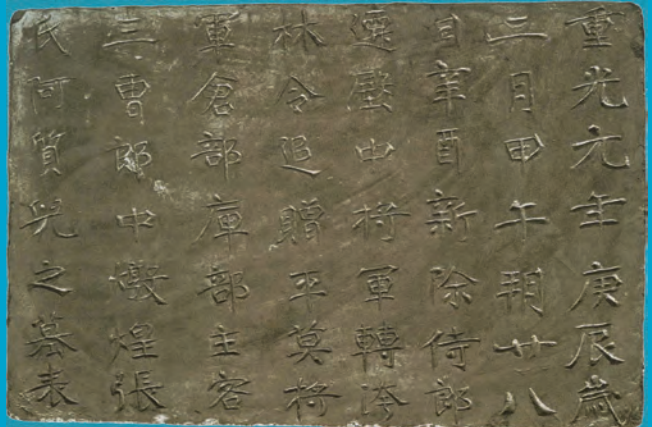 重光元年庚辰歲
二月甲午朔廿八
日辛酉新除侍郎
遷壓中將軍轉泠
林令追贈平莫將
軍倉部庫部主客
三曹郎中燉煌張
氏阿質兒之墓表